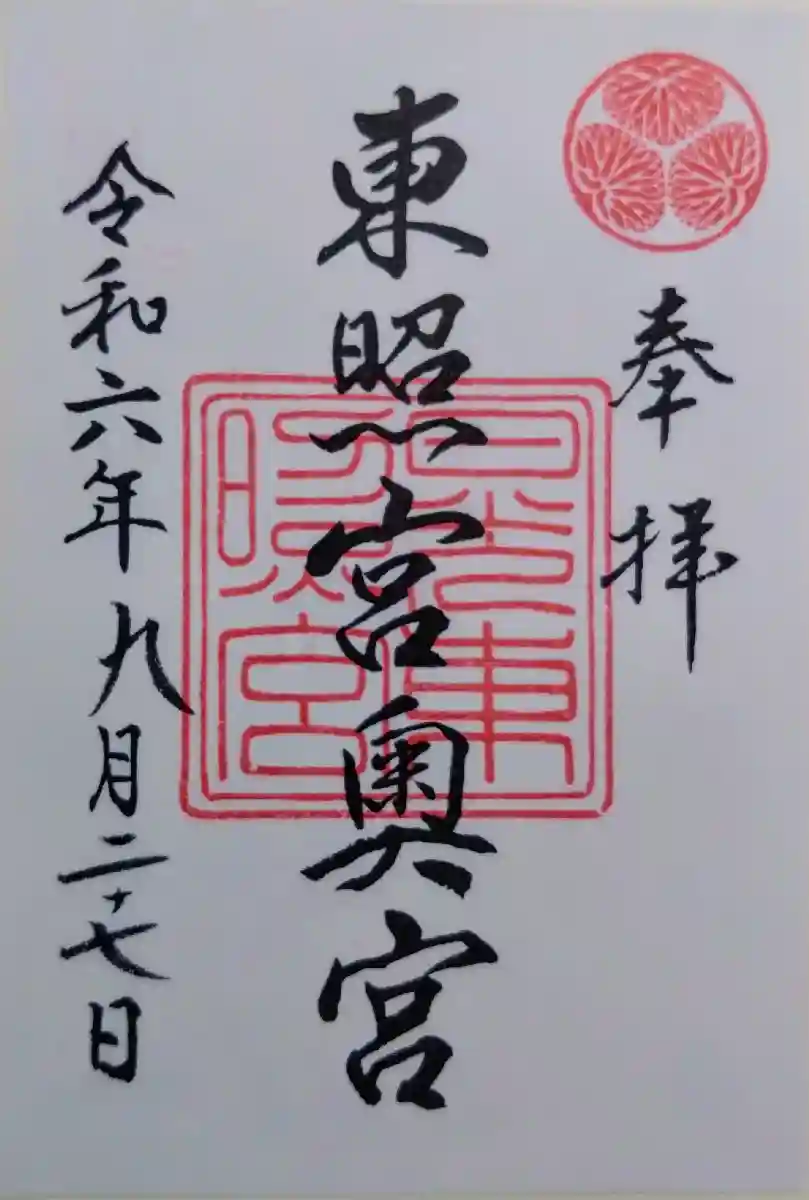 奉拝
東照宮奥宮
日光東
照宮
令和六年九月二十七日